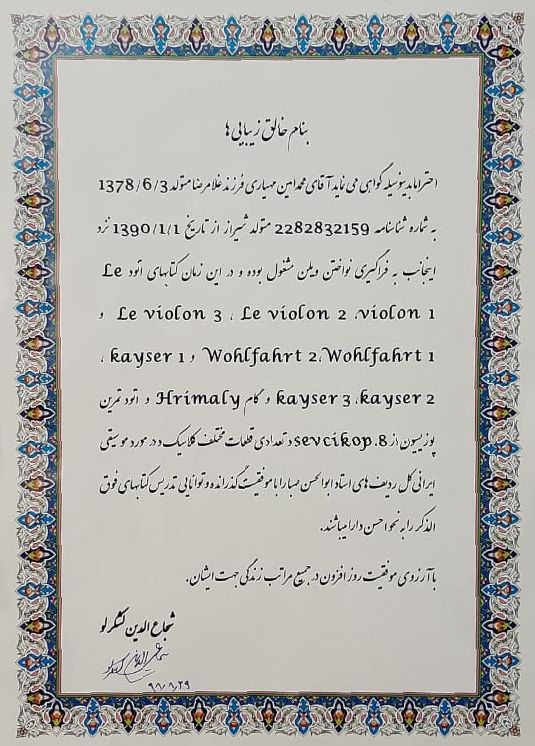 بنام خالق زیبایی ها
احتراما بدینوسیله گواهی می نماید آقای محمد امین مهیاری فرزند غلامرضا متولد 1378/6/3
به شماره شناسنامه 2282832159 متولد شیراز از تاریخ 1390/1/1 نزد
اینجانب به فراگیری نواختن ویلن مشغول بوده و در این زمان کتابهای اتود Le
violon 1، Le violon 2 ، Le violon 3 و
Wohlfahrt 1،Wohlfahrt 2 و kayser 1 ،
kayser 2، kayser 3 و گام Hrimaly و اتود تمرین
پوزیسیون از sevcikop.8 و تعدادی قطعات مختلف کلاسیک و در مورد موسیقی
ایرانی کل ردیف های استاد ابوالحسن صبا را با موفقیت گذرانده و توانایی تدریس کتابهای فوق
الذکر را به نحو احسن دارا میباشند.
با آرزوی موفقیت روز افزون در جمیع مراتب زندگی جهت ایشان.
شجاع الدین لشکرلو
۹۸/۸/۲۹